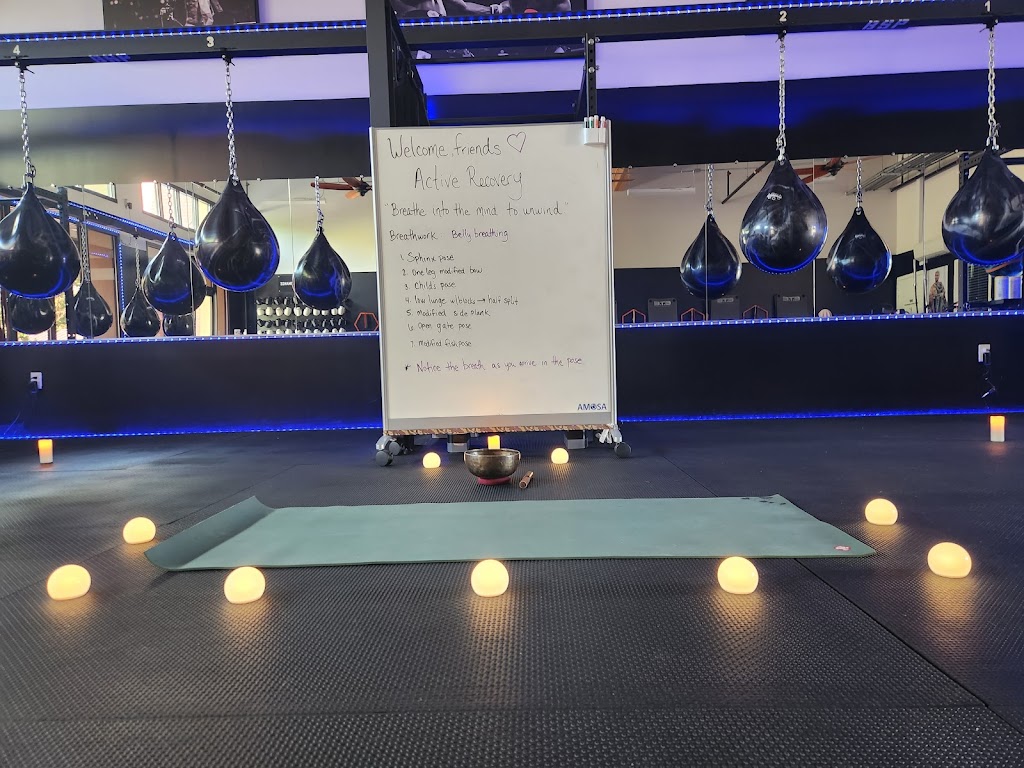 4
3
2
1
Welcome, friends ♡
Active Recovery
"Breathe into the mind to unwind"
Breathwork Belly breathing
1. Sphinx pose
2. One leg modified bow
3. Childs pose
4. low lunge w/ → half split
5. modified side plank
6. open gate pose
7. modified fish pose
* Notice the breath, as you arrive in the pose.
AMUSA